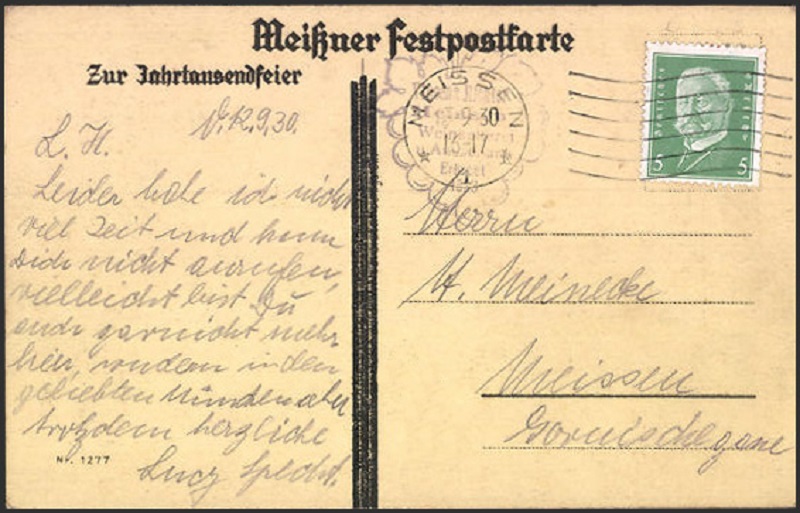 Meißner Festpostkarte
Zur Jahrtausendfeier
MEISSEN
9.30
15-17
5 5
V. 12.9.30.
L. H.
Leider habe ich nicht
viel Zeit und kann
Dich nicht anrufen,
vielleicht bist Du
auch garnicht mehr
hier, sondern in dem
geliebten Minden aber
trotzdem herzliche
Lucy Specht.
Nr. 1277
Herrn
H. Meinecke
Meissen